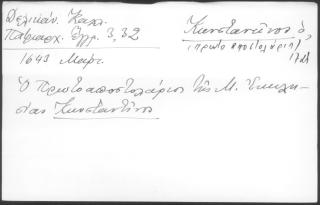 Δελικάν. Καλλ.
Πατριαρχ. Ἐγγρ. 3, 32
Κωνσταντῖνος ὁ,
(πρωτοαποστολάριος)
1643 Μαρτ.
Ὁ Πρωτοαποστολάριος τῆς Μ. Ἐκκλη-
σίας Κωνσταντῖνο